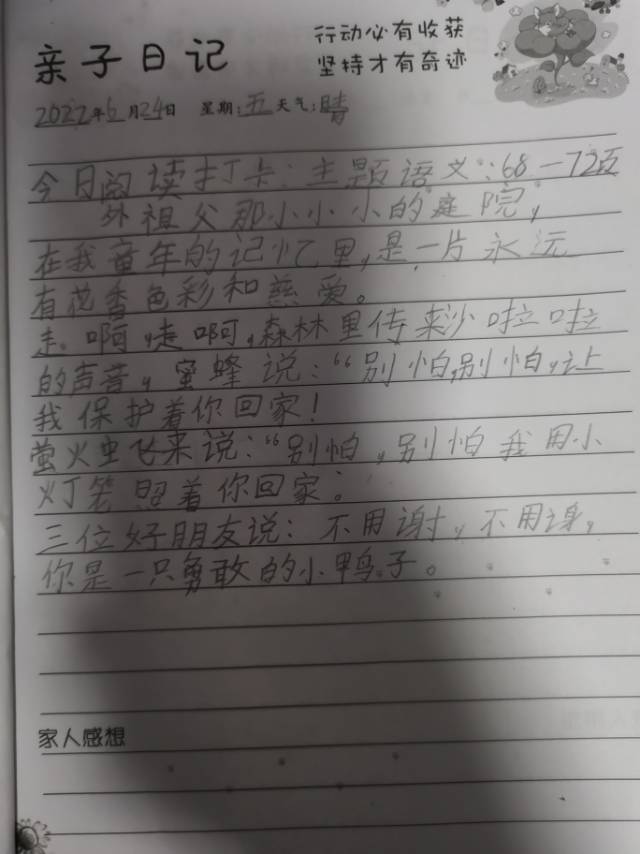 亲子日记
行动必有收获
坚持才有奇迹
2022年6月24日 星期:五 天气:晴
今日阅读打卡:主题语文:68—72页
外祖父那小小小的庭院,
在我童年的记忆里,是一片永远
有花香色彩和慈爱。
走啊,走啊,森林里传来沙啦啦
的声音,蜜蜂说:“别怕,别怕,让
我保护着你回家!
萤火虫飞来说:“别怕,别怕我用小
灯笼照着你回家。
三位好朋友说:不用谢,不用谢,
你是一只勇敢的小鸭子。
家人感想